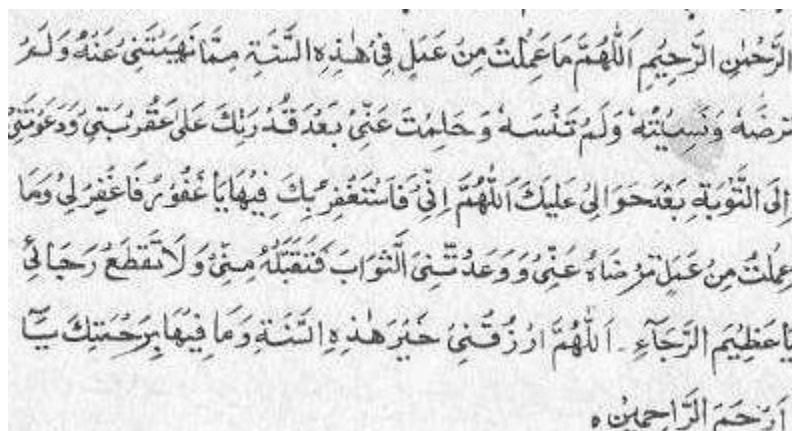 الرَّحْمٰنِ الرَّحِيْمِ اَللّٰهُمَّ مَا عَمِلْتُ مِنْ عَمَلٍ فِيْ هٰذِهِ السَّنَةِ مِمَّا نَهَيْتَنِيْ عَنْهُ وَلَمْ
تَرْضَهٗ وَنَسِيْتُهٗ وَلَمْ تَنْسَهٗ وَحَلِمْتَ عَنِّيْ بَعْدَ قُدْرَتِكَ عَلٰى عَقُوْبَتِيْ وَدَعَوْتَنِيْ
اِلَى التَّوْبَةِ بَعْدَ حَوَالِيْ عَلَيْكَ اَللّٰهُمَّ اِنِّيْ فَاسْتَغْفِرُ بِكَ فِيْهَا يَا غَفُوْرُ فَاغْفِرْ لِيْ وَمَا
عَمِلْتُ مِنْ عَمَلٍ تَرْضَاهُ عَنِّيْ وَوَعَدْتَّنِيْ الثَّوَابَ فَتَقَبَّلْهُ مِنِّيْ وَلَا تَقْطَعْ رَجَائِيْ
يَا عَظِيْمَ الرَّجَآءِ۔ اَللّٰهُمَّ ارْزُقْنِيْ خَيْرَ هٰذِهِ السَّنَةِ وَمَا فِيْهَا بِرَحْمَتِكَ يَآ
اَرْحَمَ الرَّاحِمِيْنَ ه